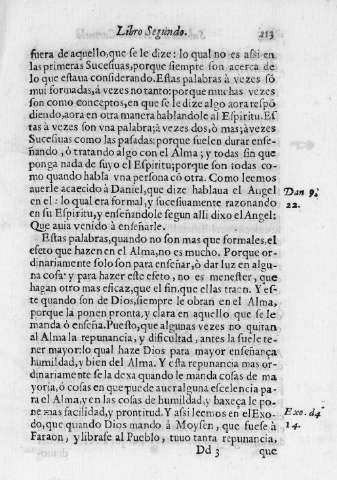 Libro Segundo. 213
fuera de aquello, que se le dize: lo qual no es assi en
las primeras Sucesiuas, porque siempre son acerca de
lo que estaua considerando. Estas palabras à vezes sõ
mui formadas, à vezes no tanto: porque muchas vezes
son como conceptos, en que se le dize algo aora respõ
diendo, aora en otra manera hablandole al Espiritu. Es
tas à vezes son vna palabra; à vezes dos, ò mas; àvezes
Sucesiuas como las pasadas: porque suelen durar ense-
ñando, ò tratando algo con el Alma; y todas sin que
ponga nada de suyo el Espiritu; porque son todas co-
mo quando habla vna persona cõ otra. Como leemos
auerle acaecido à Daniel, que dize hablaua el Angel
en el: lo qual era formal, y sucesiuamente razonando
en su Espiritu, y enseñandole segun alli dixo el Angel:
Que auia venido à enseñarle.
Dan 9.
22.
Estas palabras, quando no son mas que formales, el
efeto que hazen en el Alma, no es mucho. Porque or-
dinariamente solo son para enseñar, ò dar luz en algu-
na cosa: y para hazer este efeto, no es menester, que
hagan otro mas eficaz, que el fin, que ellas traen. Y es-
te quando son de Dios, siempre le obran en el Alma,
porque la ponen pronta, y clara en aquello que se le
manda ò enseña. Puesto, que algunas vezes no quitan
al Alma la repunancia, y dificultad, antes la suele te-
ner mayor: lo qual haze Dios para mayor enseñança
humildad, y bien del Alma. Y esta repunancia mas or-
dinariamente se la dexa quando le manda cosas de ma
yoria, ò cosas en que puede auer alguna escelencia pa-
ra el Alma, y en las cosas de humildad, y baxeça le po-
ne mas facilidad, y prontitud. Y assi leemos en el Exo-
do, que quando Dios mandò à Moysen, que fuese à
Faraon, y librase al Pueblo, tuuo tanta repunancia,
Exo. d4
14.
Dd 3 que